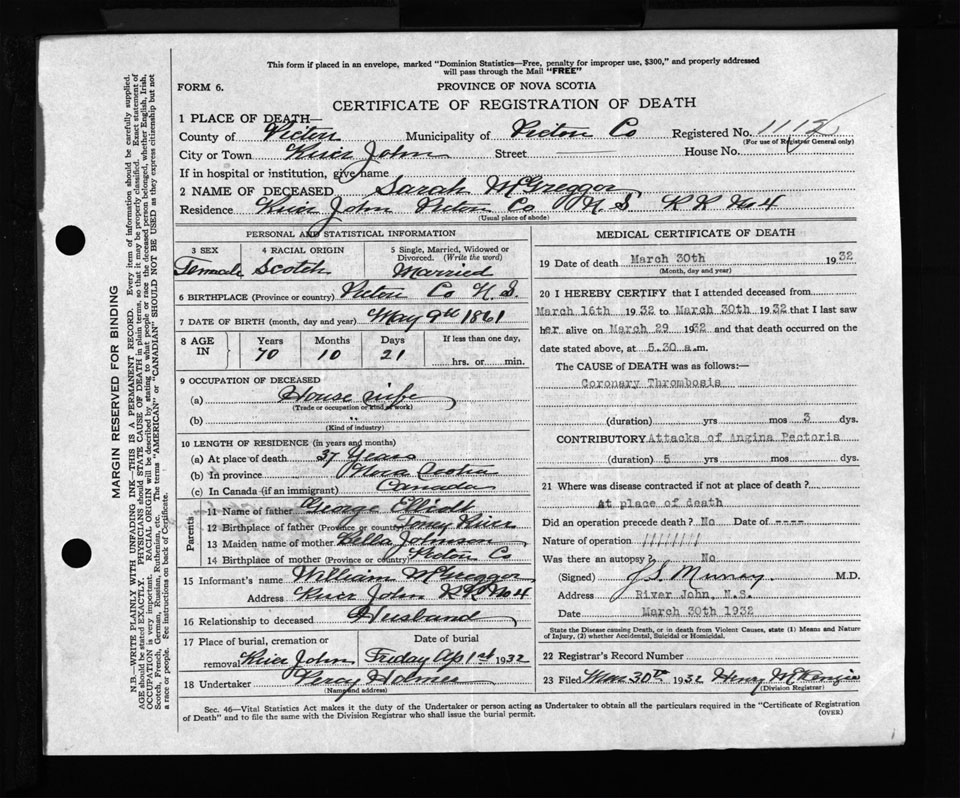 This form if placed in an envelope, marked "Dominion Statistics—Free, penalty for improper use, $300," and properly addressed
will pass through the Mail "FREE"
FORM 6.
PROVINCE OF NOVA SCOTIA
CERTIFICATE OF REGISTRATION OF DEATH
1 PLACE OF DEATH—
County of Pictou Municipality of Pictou Co Registered No. 1112
(For use of Registrar General only)
City or Town River John Street House No.
If in hospital or institution, give name
2 NAME OF DECEASED Sarah McGreggor
Residence River John Pictou Co N S R R No 4
(Usual place of abode)
PERSONAL AND STATISTICAL INFORMATION
3 SEX 4 RACIAL ORIGIN 5 Single, Married, Widowed or
Divorced. (Write the word)
Female Scotch Married
6 BIRTHPLACE (Province or country) Pictou Co N.S.
7 DATE OF BIRTH (month, day and year) May 9th 1861
8 AGE IN Years Months Days If less than one day,
70 10 21 hrs. or min.
9 OCCUPATION OF DECEASED
(a) House wife
(Trade or occupation or kind of work)
(b) "
(Kind of industry)
10 LENGTH OF RESIDENCE (in years and months)
(a) At place of death 37 Years
(b) In province Nova Scotia
(c) In Canada (if an immigrant) Canada
Parents
11 Name of father George Elliott
12 Birthplace of father (Province or country) Toney River
13 Maiden name of mother Bella Johnson
14 Birthplace of mother (Province or country) Pictou Co
15 Informant's name William McGreggor
Address River John R R No 4
16 Relationship to deceased Husband
17 Place of burial, cremation or Date of burial
removal River John Friday Apl 1st 1932
18 Undertaker Percy Holmes
(Name and address)
MEDICAL CERTIFICATE OF DEATH
19 Date of death March 30th 1932
(Month, day and year)
20 I HEREBY CERTIFY that I attended deceased from
March 16th 1932 to March 30th 1932 that I last saw
her alive on March 29 1932 and that death occurred on the
date stated above, at 5.30 a.m.
The CAUSE of DEATH was as follows:—
Coronary Thrombosis
(duration) yrs mos 3 dys.
CONTRIBUTORY Attacks of Angina Pectoris
(duration) 5 yrs mos dys.
21 Where was disease contracted if not at place of death?
At place of death
Did an operation precede death? No Date of ----
Nature of operation ////////
Was there an autopsy? No
(Signed) J S Murray. M.D.
Address River John, N.S.
Date March 30th 1932
State the Disease causing Death, or in death from Violent Causes, state (1) Means and Nature
of Injury, (2) whether Accidental, Suicidal or Homicidal.
22 Registrar's Record Number
23 Filed Mar 30th 1932 Henry McKenzie
(Division Registrar)
Sec. 46—Vital Statistics Act makes it the duty of the Undertaker or person acting as Undertaker to obtain all the particulars required in the "Certificate of Registration
of Death" and to file the same with the Division Registrar who shall issue the burial permit.
(OVER)
MARGIN RESERVED FOR BINDING
N.B.—WRITE PLAINLY WITH UNFADING INK—THIS IS A PERMANENT RECORD. Every item of information should be carefully supplied.
AGE should be stated EXACTLY. PHYSICIANS should STATE CAUSE OF DEATH in plain terms, so that it may be properly classified. Exact statement of
OCCUPATION is very important. RACIAL ORIGIN will be described by stating to what people or race the deceased person belonged, whether English, Irish,
Scotch, French, German, Russian, Ruthenian, etc. The terms "AMERICAN" or "CANADIAN" SHOULD NOT BE USED as they express citizenship but not
a race or people. See instructions on back of Certificate.